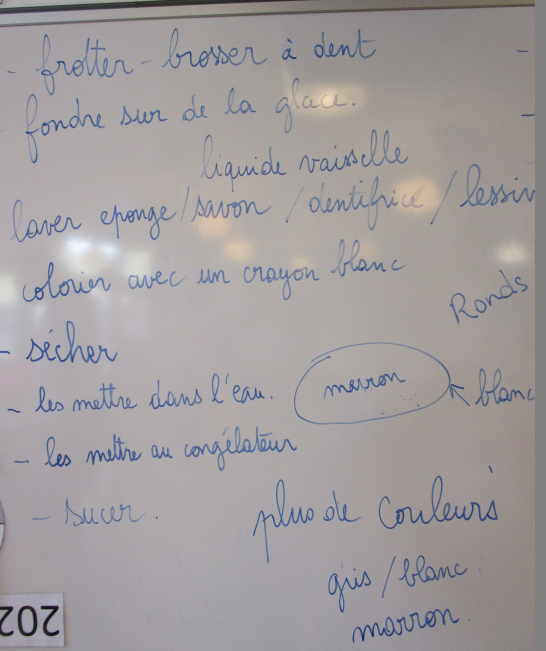 - frotter - brosser à dent
fondre sur de la glace.
liquide vaisselle
laver eponge / savon / dentifrice / lessiv
colorier avec un crayon blanc
Ronds
- sécher
- les mettre dans l'eau. marron ← blanc
- les mettre au congélateur
- sucer.
plus de couleurs
gris / blanc.
marron.
202